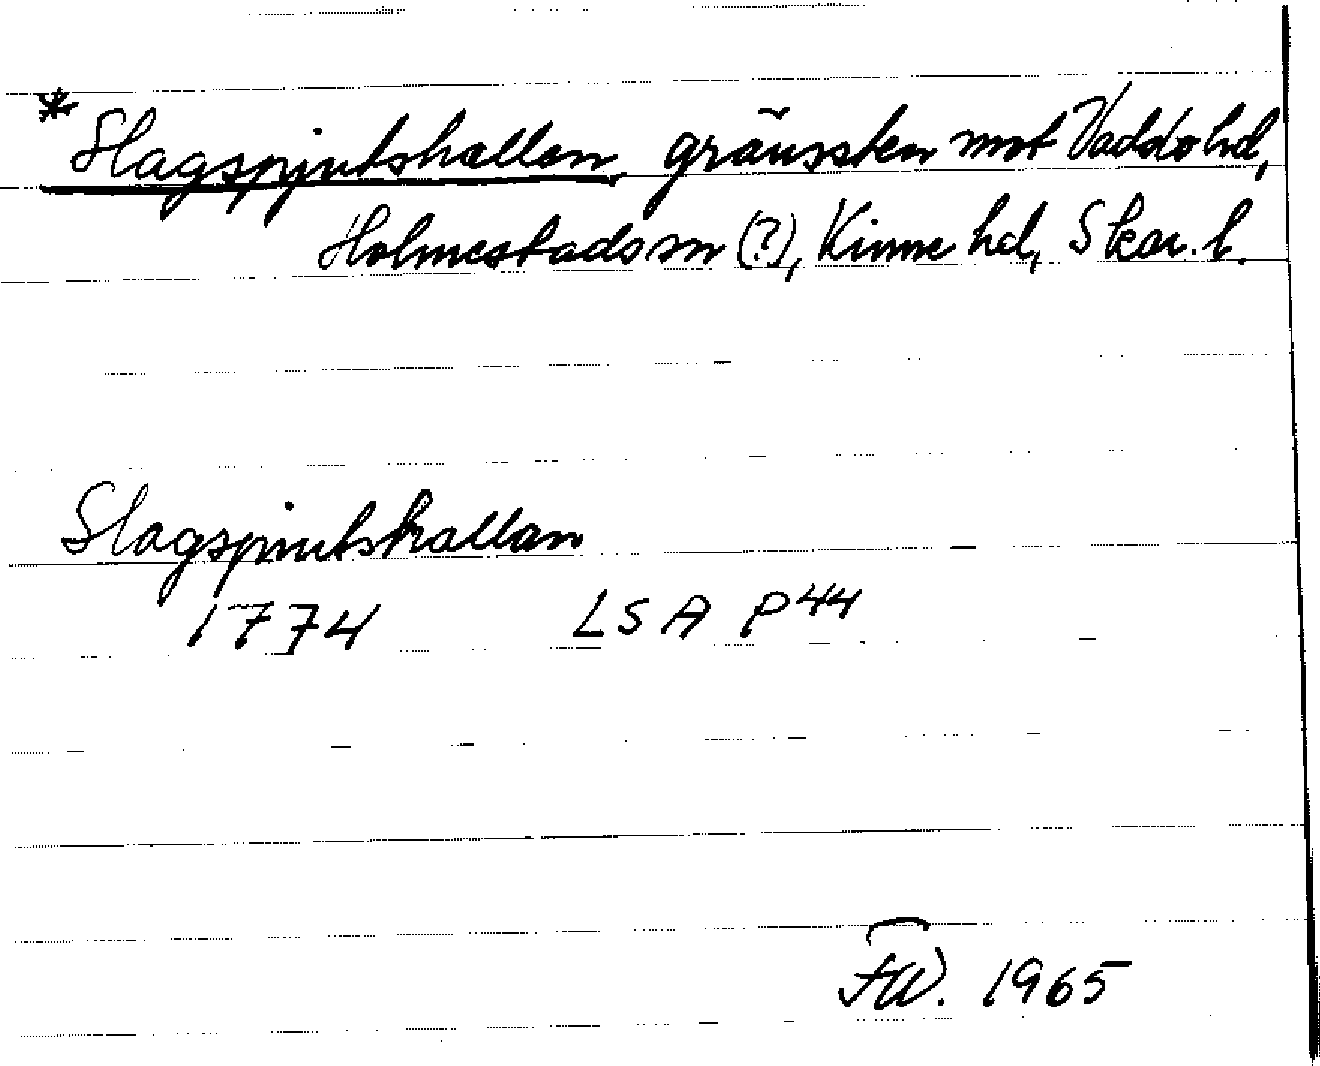 * Slagspjutshallen gränssten mot Vadsbo hd,
Holmestads sn (?), Kinne hd, Skar. l.
Slagspiutshallan
1774 LSA P44
FW. 1965